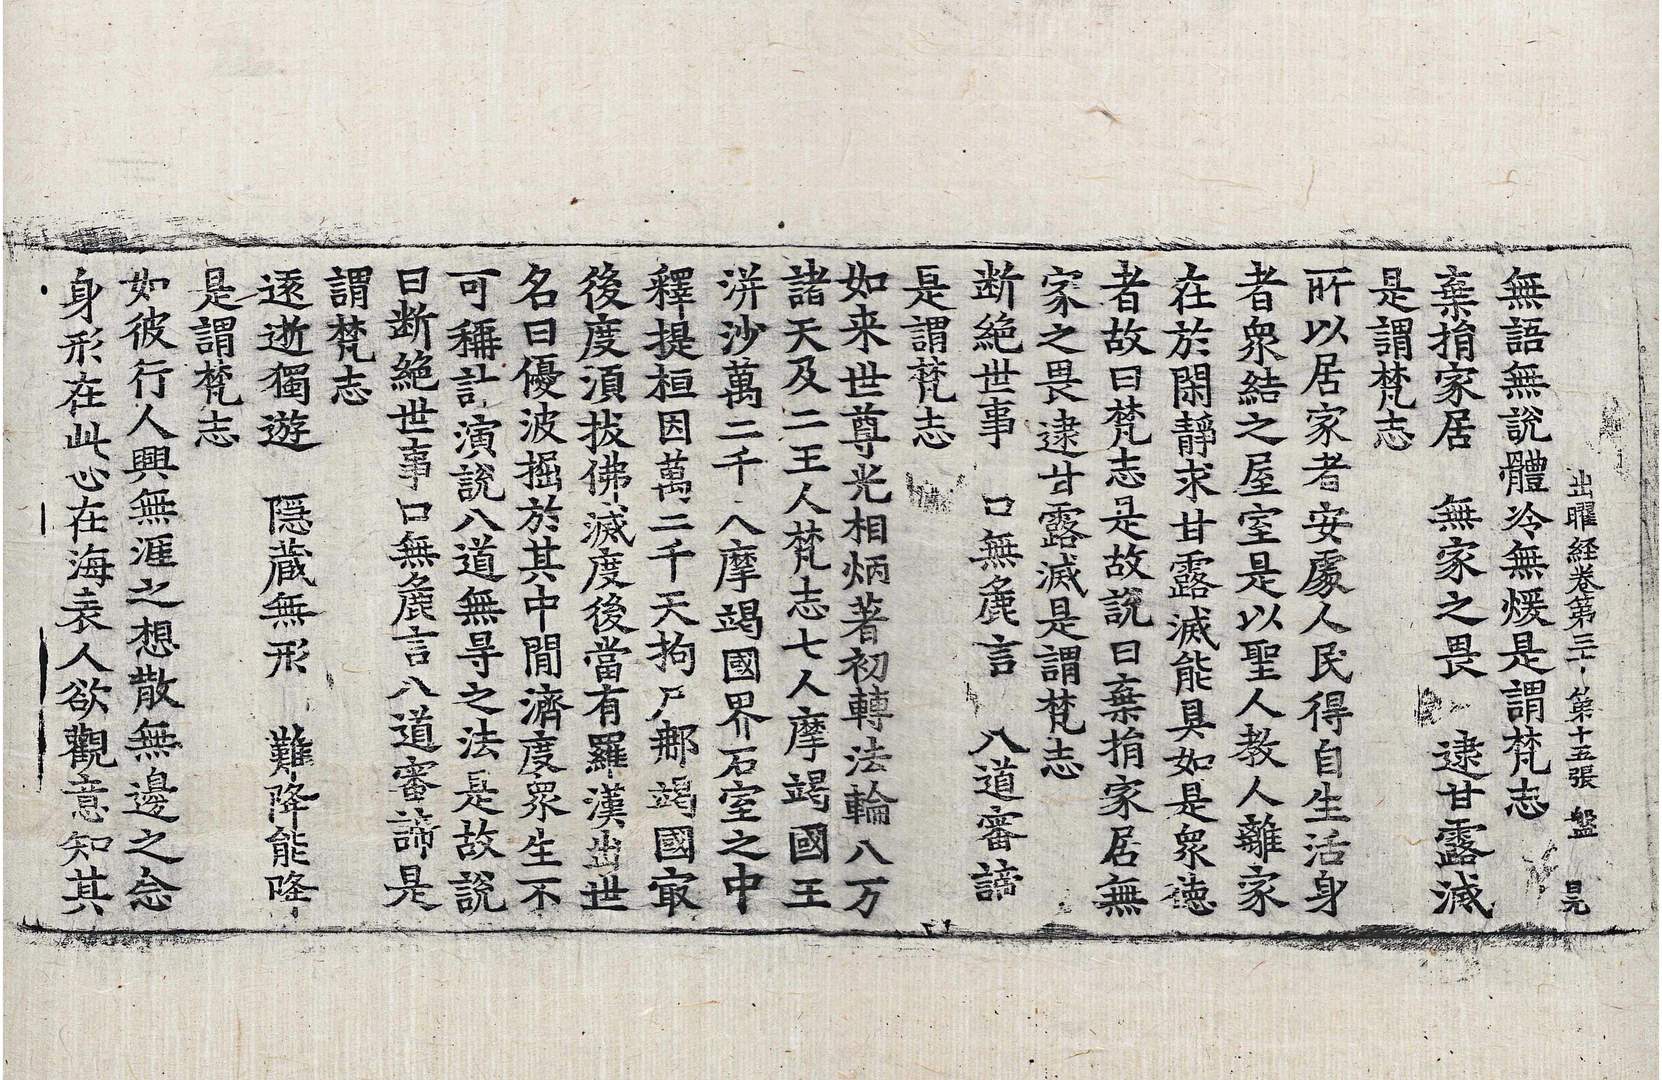 出曜経卷第三十 第十五張 盤 昌元
無語無說體冷無煖是謂梵志
棄捐家居 無家之畏 逮甘露滅
是謂梵志
所以居家者安處人民得自生活身
者衆結之屋室是以聖人教人離家
在於閑靜求甘露滅能具如是衆德
者故曰梵志是故說曰棄捐家居無
家之畏逮甘露滅是謂梵志
断絶世事 口無麁言 八道審諦
是謂梵志
如来世尊光相炳著初轉法輪八万
諸天及二王人梵志七人摩竭國王
洴沙萬二千人摩竭國界石室之中
釋提桓因萬二千天拘尸郍竭國㝡
後度湏拔佛滅度後當有羅漢出世
名曰優波掘於其中閒濟度衆生不
可稱計演說八道無㝵之法是故說
曰断絶世事口無麁言八道審諦是
謂梵志
逺逝獨遊 隠蔵無形 難降能降
是謂梵志
如彼行人興無涯之想散無邊之念
身形在此心在海表人欲觀意知其